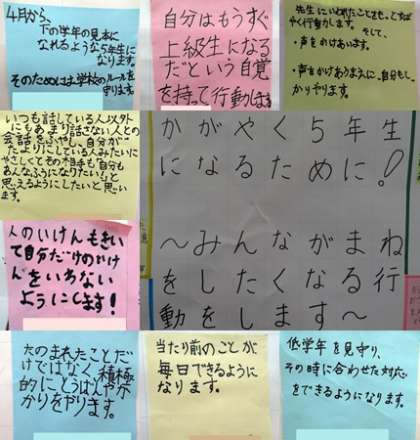 4月から、
下の学年の見本に
なれるような5年生に
なります。
そのためには学校のルールを
守ります。
自分はもうすぐ
上級生になる
だという自覚
を持って行動しまる
先生にいわれたことをもっとすば
やく行動します。そして、
・声をかけあいます。
・声をかけあうまえに、自分もし、
かりやります。
いつも話している人以外
にもあまり話さない人との
会話をふやし、自分が
たよりにしている人みたいに
やさしくその相手も自分も
あんなふうになりたいと
思えるようにしたいと思い
ます。
かがやく5年生
になるために!
〜みんながまね
をしたくなる行
動をします〜
人のいけんもきい
て自分だけのいけ
んをいわない
ようにします!
たのまれたことだ
けではなく積極
的にとうばんやか
かりをやります。
当たり前のことが
毎日できるように
なります。
低学年を見守り、
その時に合わせた対応
をできるようになります。